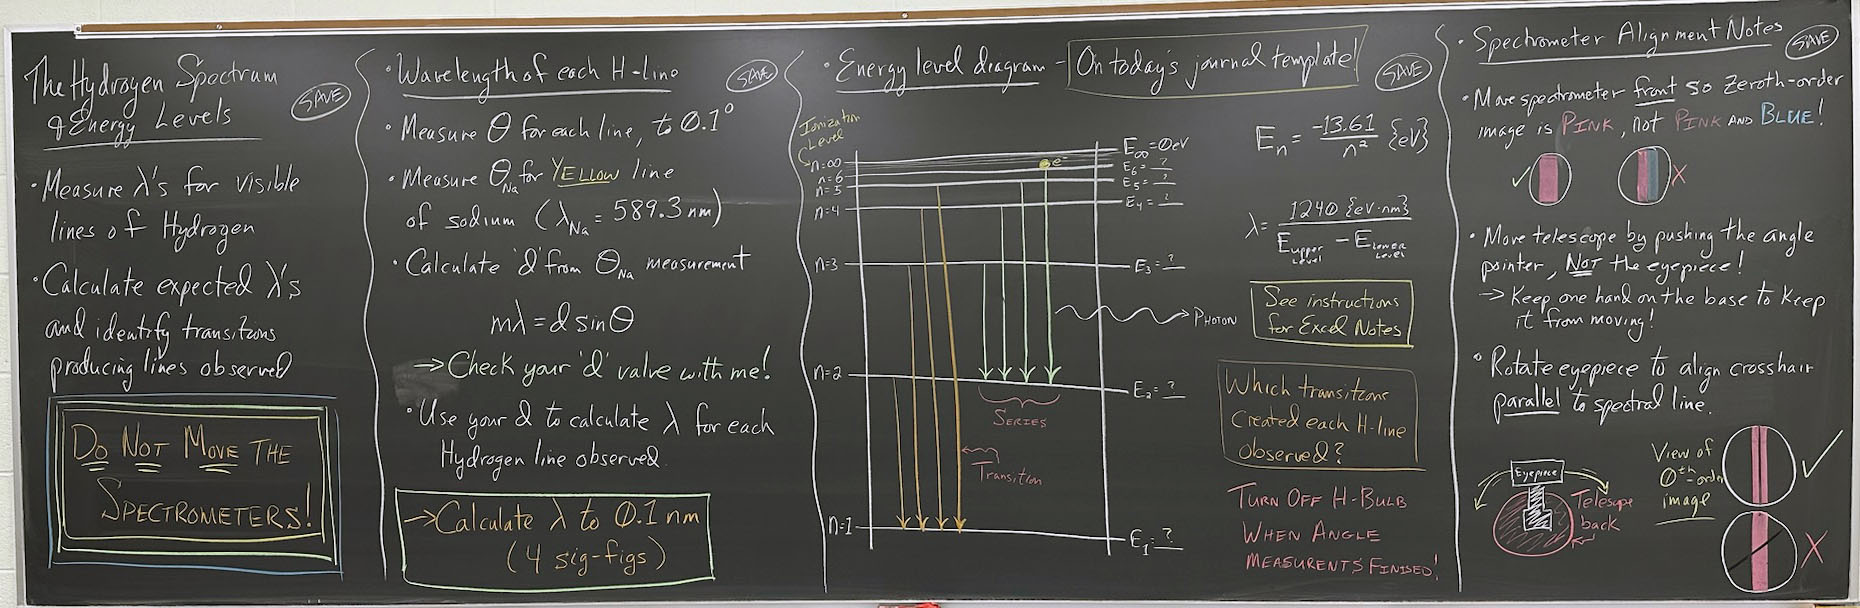 The Hydrogen Spectrum
& Energy Levels
SAVE
• Measure λ's for visible
lines of Hydrogen
• Calculate expected λ's
and identify transitions
producing lines observed
DO NOT MOVE THE
SPECTROMETERS!
• Wavelength of each H-line
SAVE
• Measure θ for each line, to 0.1°
• Measure θNa for YELLOW line
of sodium (λNa = 589.3 nm)
• Calculate 'd' from θNa measurement
mλ = d sin θ
→ Check your 'd' value with me!
• Use your d to calculate λ for each
Hydrogen line observed
→ Calculate λ to 0.1 nm
(4 sig-figs)
• Energy level diagram - On today's journal template!
SAVE
Ionization
Level
n=∞
E∞=0eV
n=6
E6=?
n=5
E5=?
n=4
E4=?
e⁻
n=3
E3=_
PHOTON
n=2
E2=?
SERIES
Transition
n=1
E1=?
En = -13.61/n² {eV}
λ = 1240 {eV·nm}
Eupper Level - Elower Level
See instructions
for Excel Notes
Which transitions
created each H-line
observed?
TURN OFF H-BULB
WHEN ANGLE
MEASURENTS FINISED!
• Spectrometer Alignment Notes
SAVE
• Move spectrometer front so Zeroth-order
image is PINK, not PINK AND BLUE!
✓
X
• Move telescope by pushing the angle
pointer, NOT the eyepiece!
→ Keep one hand on the base to keep
it from moving!
• Rotate eyepiece to align crosshair
parallel to spectral line.
Eyepiece
Telescope
back
View of
0th-order
image
✓
X